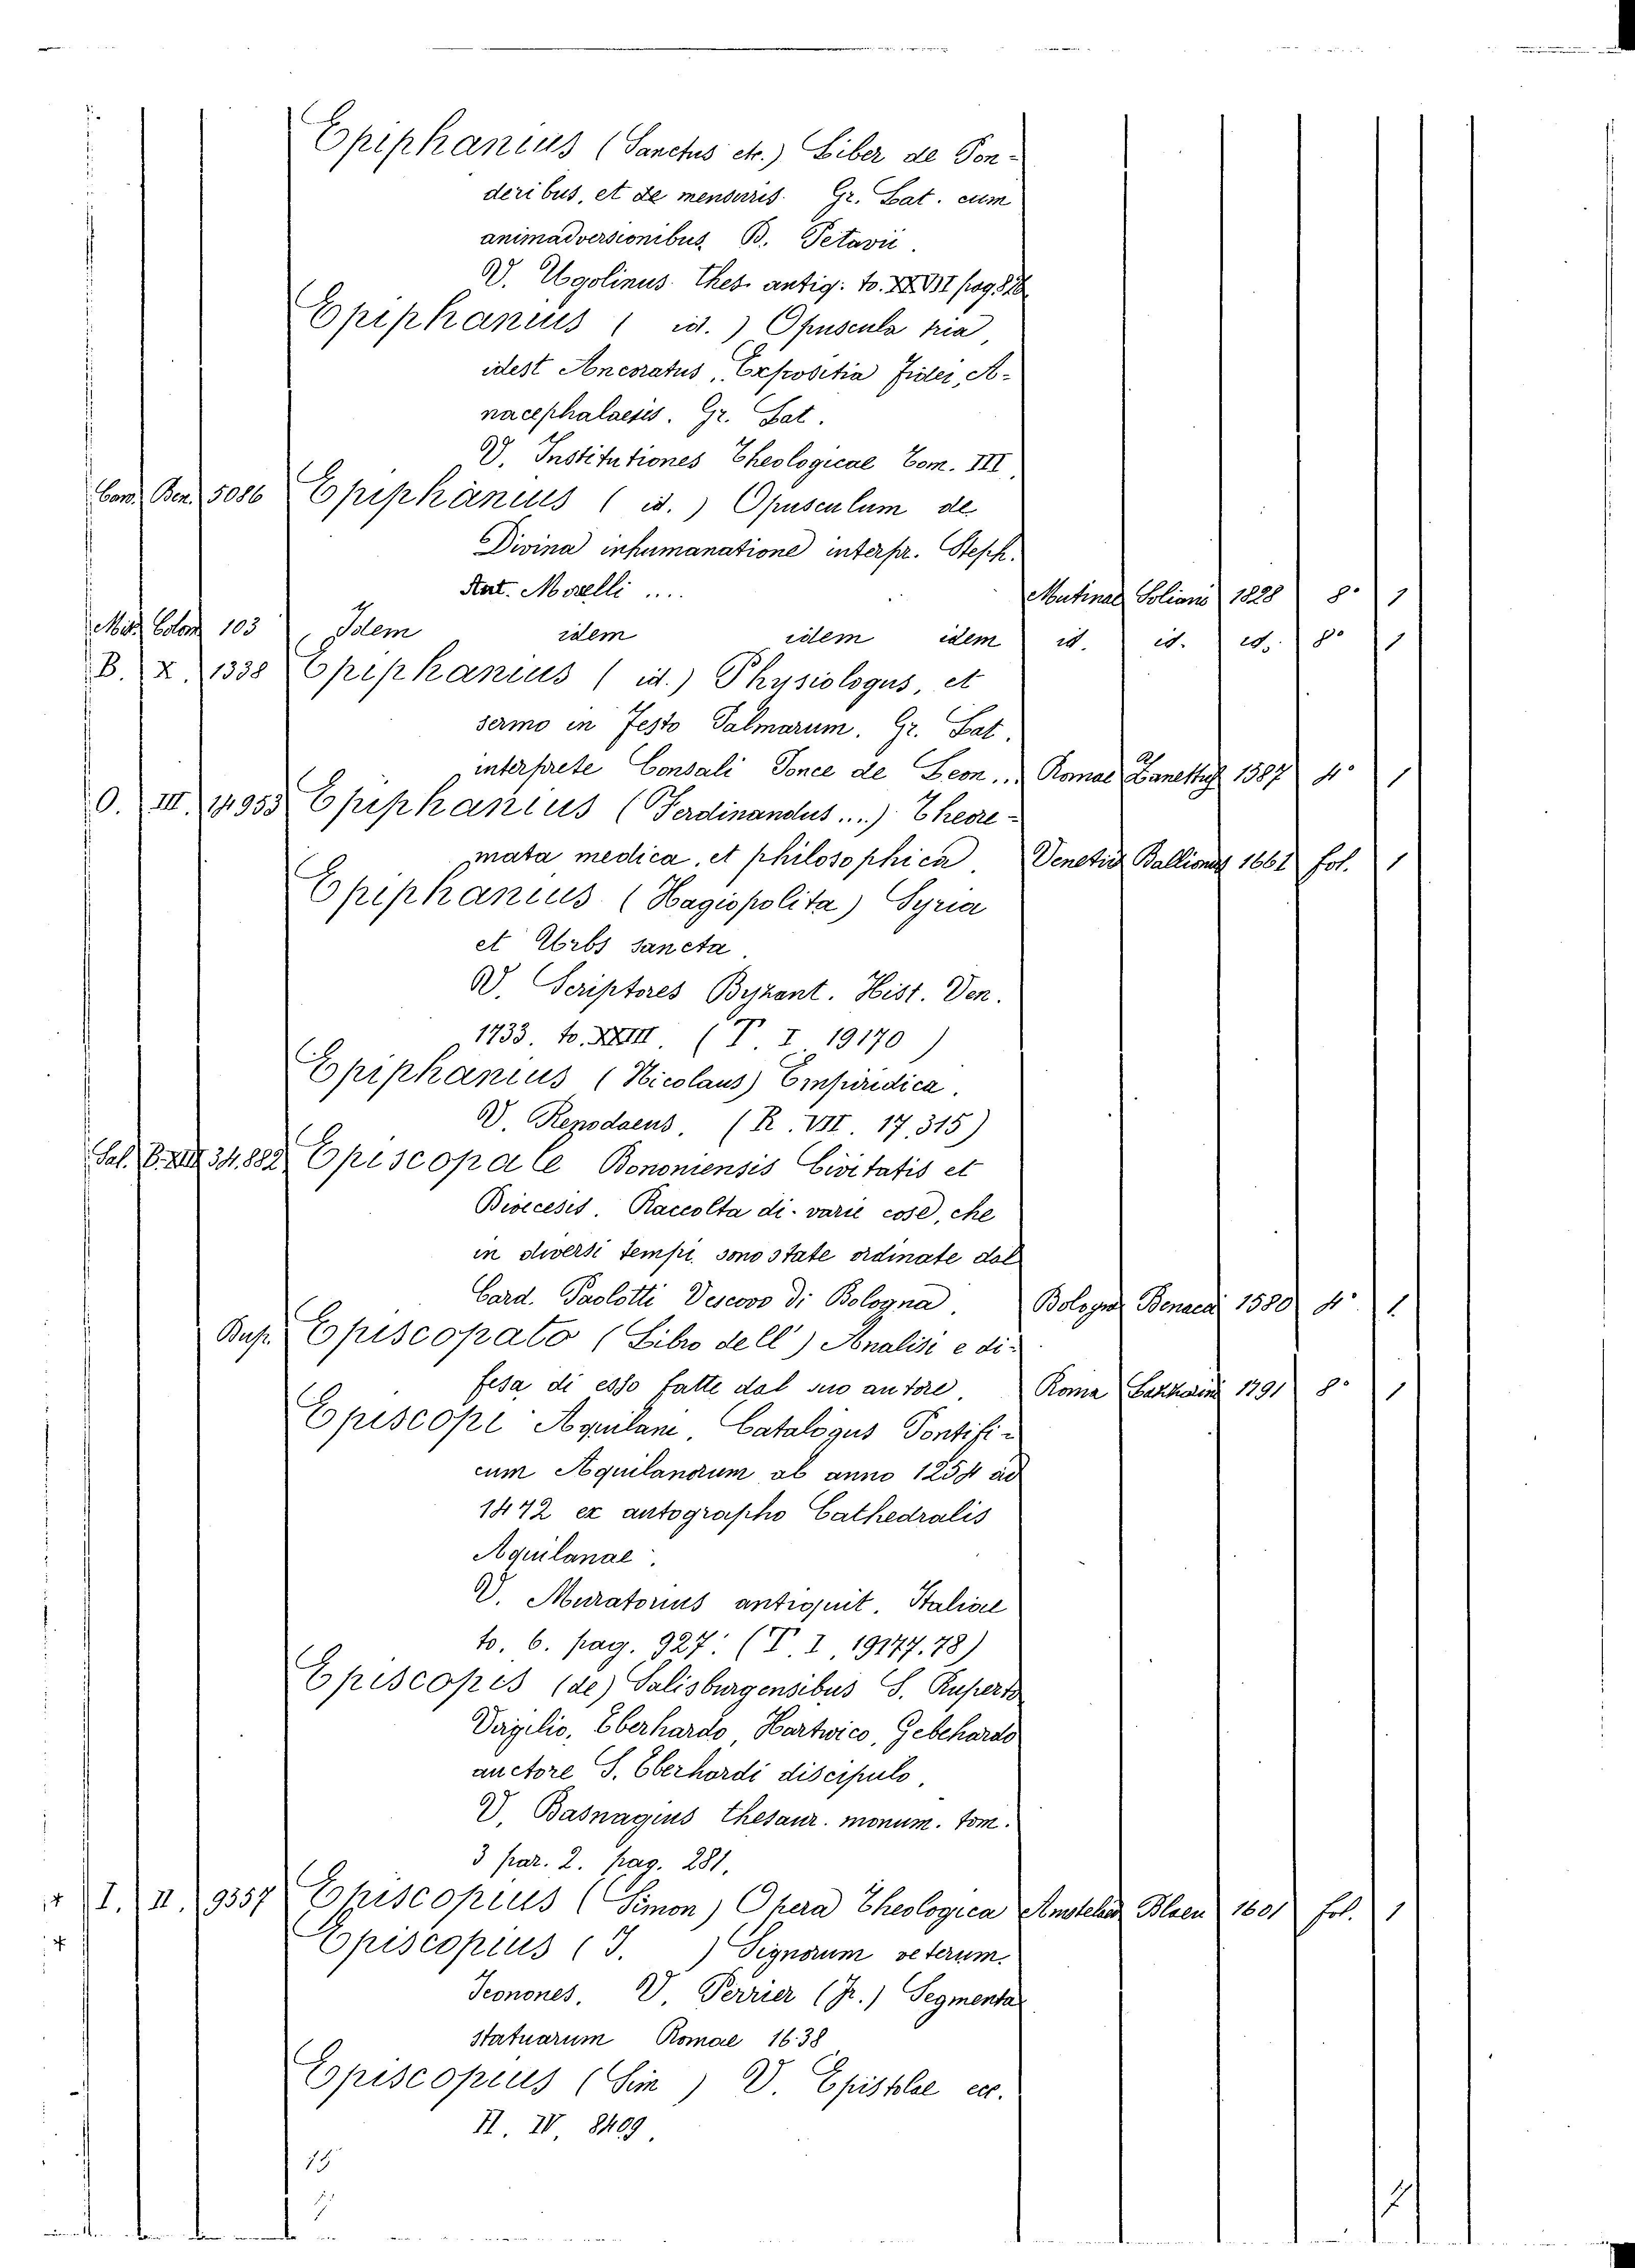 Epiphanius (Sanctus etc.) Liber de Pon-
deribus, et de mensuris. Gr. Lat. cum
animadversionibus D. Petavii.
V. Ugolinus. Thes. antiq. to. XXVIII pag.
Epiphanius ( id. ) Opuscula tria,
idest Ancoratus, Expositia Fidei, A-
nacephalaesis. Gr. Lat.
V. Institutiones Theologicae Tom. III.
Cam. Ben. 5086 Epiphanius ( id. ) Opusculum de
Divina inhumanatione interpr. Steph.
Ant. Morelli .... Mutinae Soliani 1828 8° 1
Colon 103 Idem idem idem idem id. id. id. 8° 1
B. X. 1338 Epiphanius ( id. ) Physiologus, et
sermo in Festo Palmarum. Gr. Lat.
interprete Consali Ponce de Leon... Romae Zanettus 1587 4° 1
O. III. 14953 Epiphanius (Ferdinandus....) Theore-
mata medica, et philosophica. Venetiis Ballionus 1661 fol. 1
Epiphanius (Hagiopolita) Syria
et Urbs sancta.
V. Scriptores Byzant. Hist. Ven.
1733. to. XXIII. (T. I. 19170 )
Epiphanius (Nicolaus) Empiridica.
V. Renodaeus. (R. VII. 17.315)
Sal. B. XIII 34.882 Episcopale Bononiensis Civitatis et
Dioecesis. Raccolta di varie cose, che
in diversi tempi sono state ordinate dal
Card. Paolotti Vescovo di Bologna. Bologna Benacci 1580 4° 1
Busp. Episcopato (Libro dell') Analisi e di-
fesa di esso fatte dal suo autore. Roma Lazzarini 1791 8° 1
Episcopi Aquilani. Catalogus Pontifi-
cum Aquilanorum ab anno 1254 ad
1472 ex autographo Cathedralis
Aquilanae.
V. Muratorius antiquit. Italicae
to. 6. pag. 927. (T. I. 19177.78)
Episcopis (de) Salisburgensibus S. Ruperto
Virgilio, Eberhardo, Hartwico, Gebehardo
auctore S. Eberhardi discipulo,
V. Basnagius thesaur. monum. tom.
3 par. 2. pag. 281.
+ I. II. 9357 Episcopius (Simon) Opera Theologica Amstelod. Blaeu 1601 fol. 1
+ Episcopius (J. ) Signorum veterum
Icones. V. Perrier (Fr.) Segmenta
statuarum Romae 1638
Episcopius (Sim ) V. Epistolae ecc.
H. IV. 8409.
15
7
7